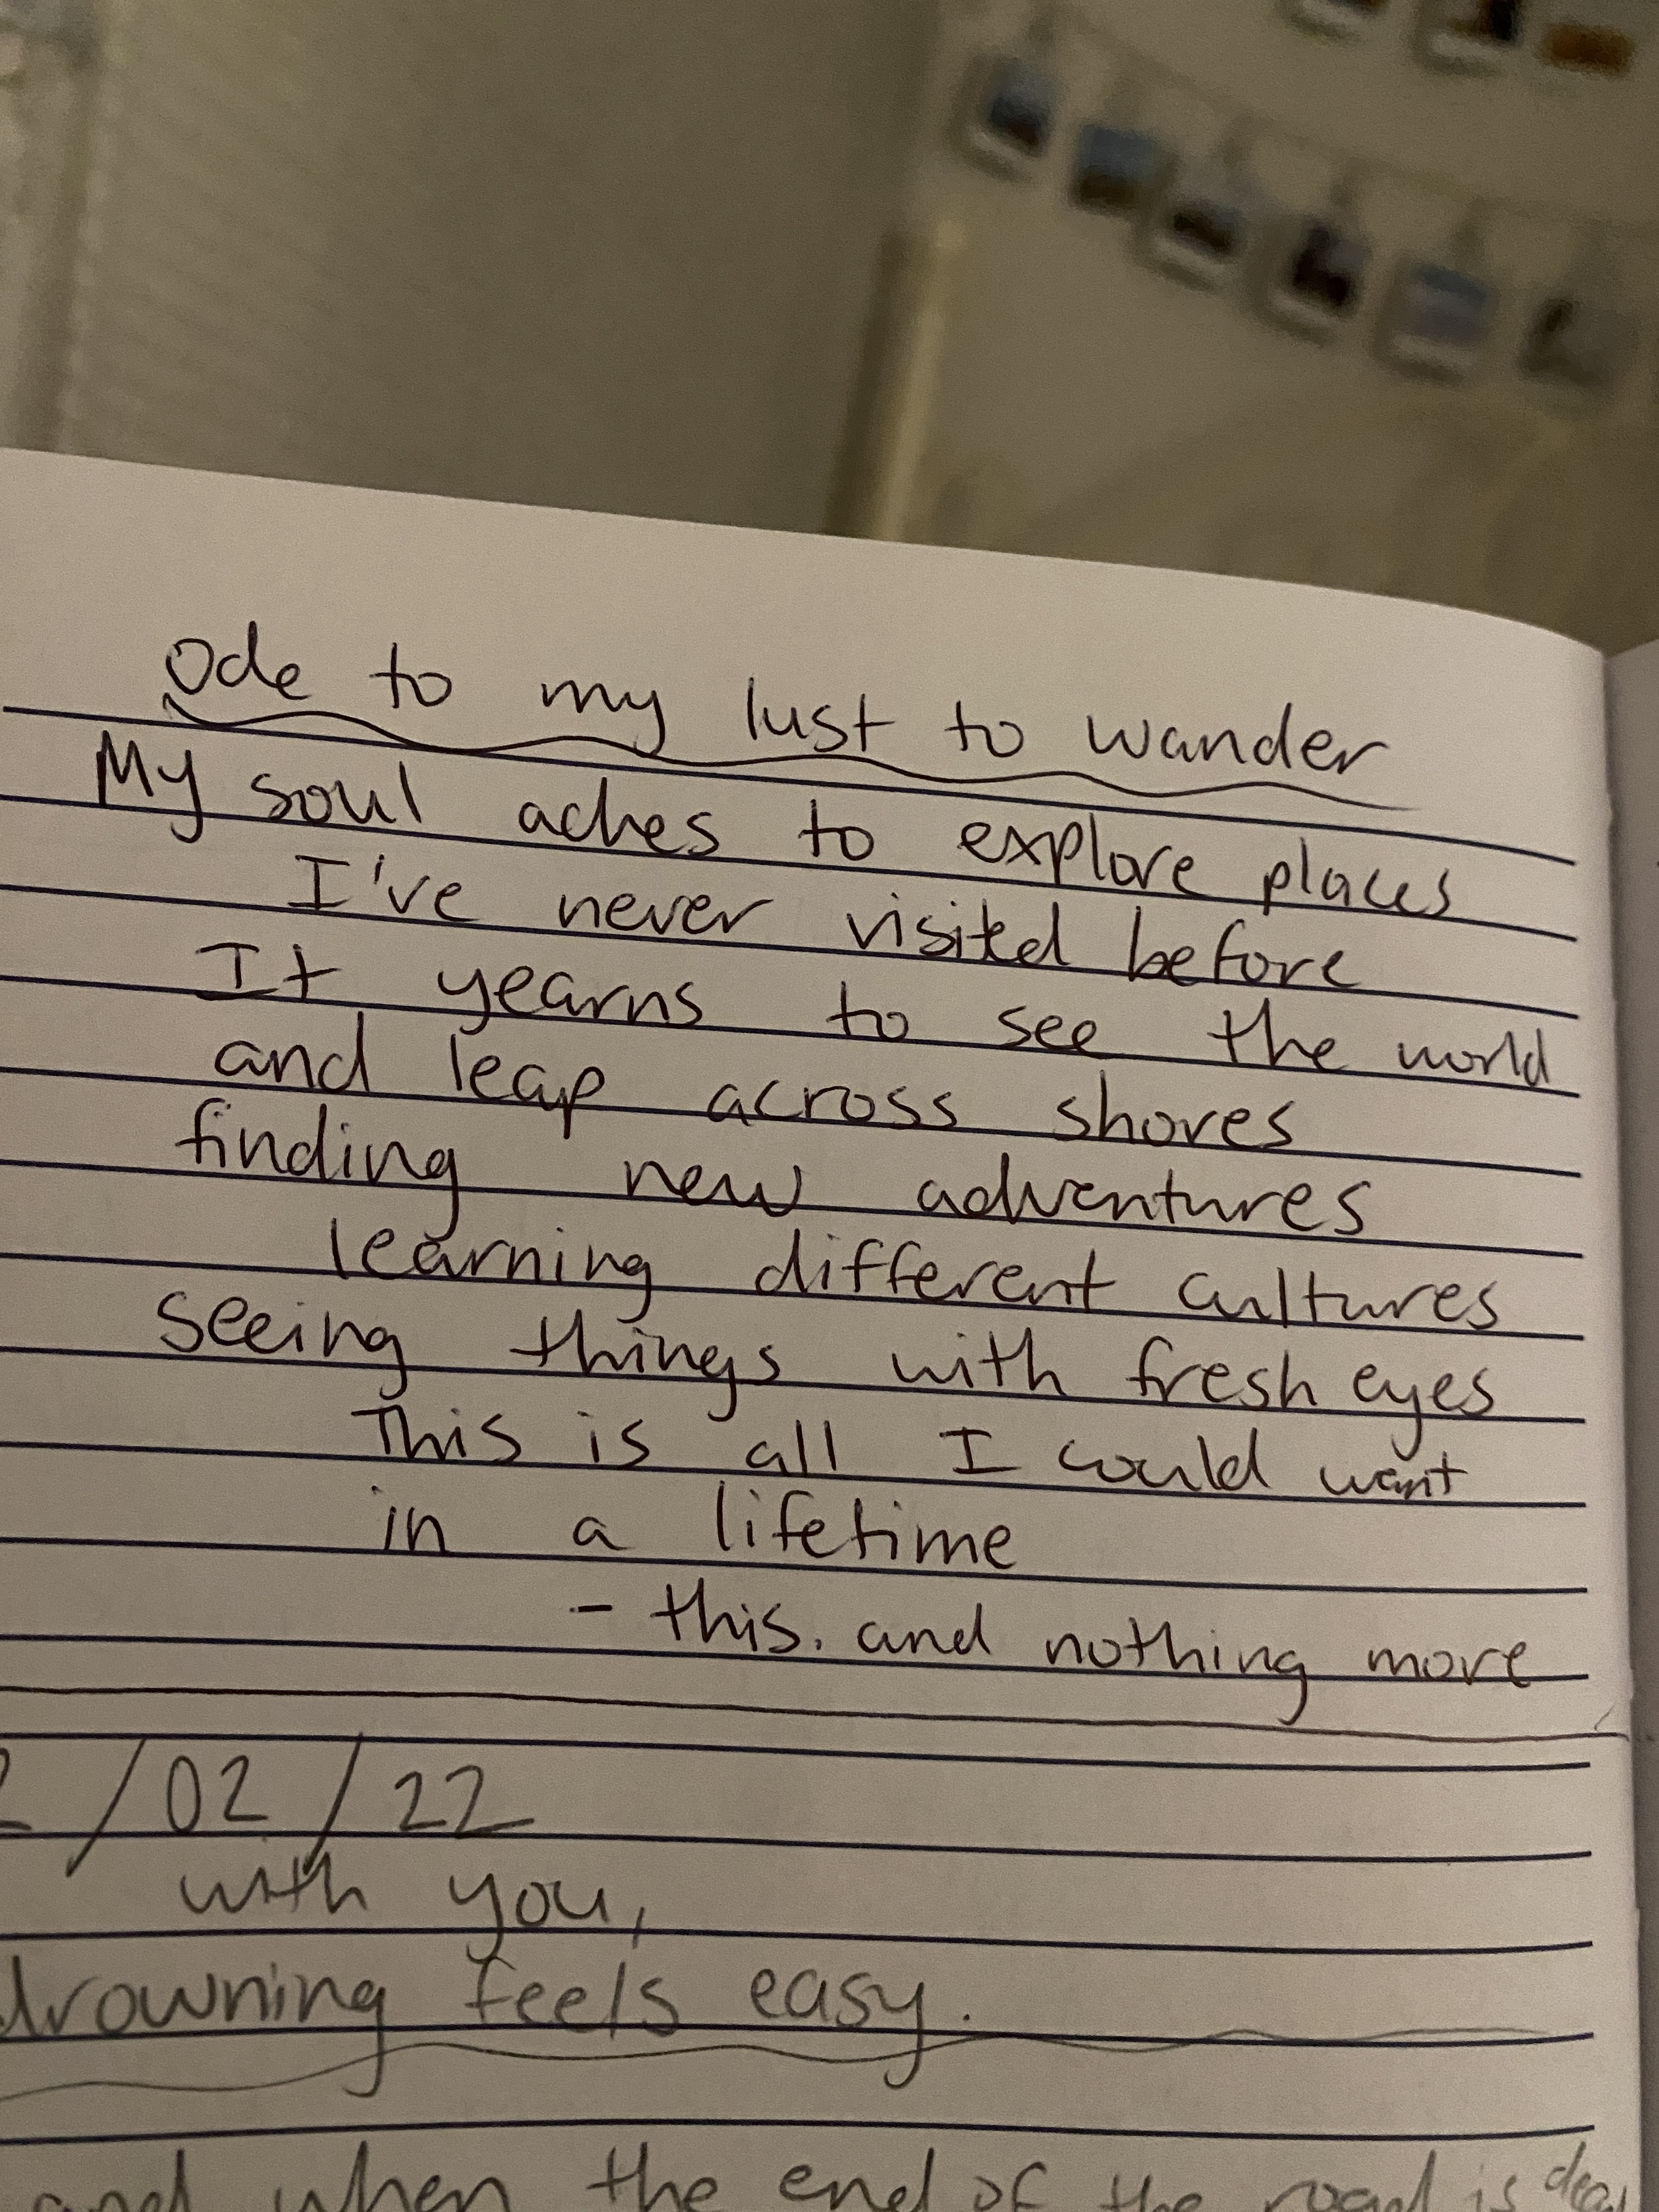 Ode to my lust to wander
My soul aches to explore places
I've never visited before
It yearns to see the world
and leap across shores
finding new adventures
learning different cultures
seeing things with fresh eyes
This is all I could want
in a lifetime
- this. and nothing more
2/02/22
with you,
drowning feels easy.
and when the end of the road is